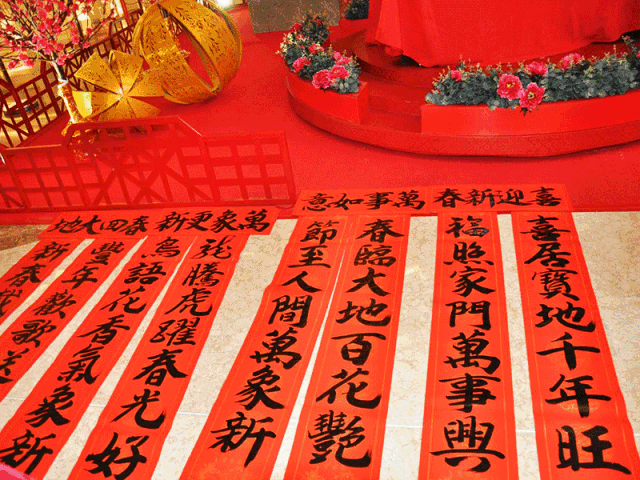 喜迎新春
喜居寶地千年旺
福照家門萬事興
萬事如意
春臨大地百花艷
節至人間萬象新
萬象更新
龍騰虎躍春光好
鳥語花香氣象新
春回大地
豐年歡歌送
新春